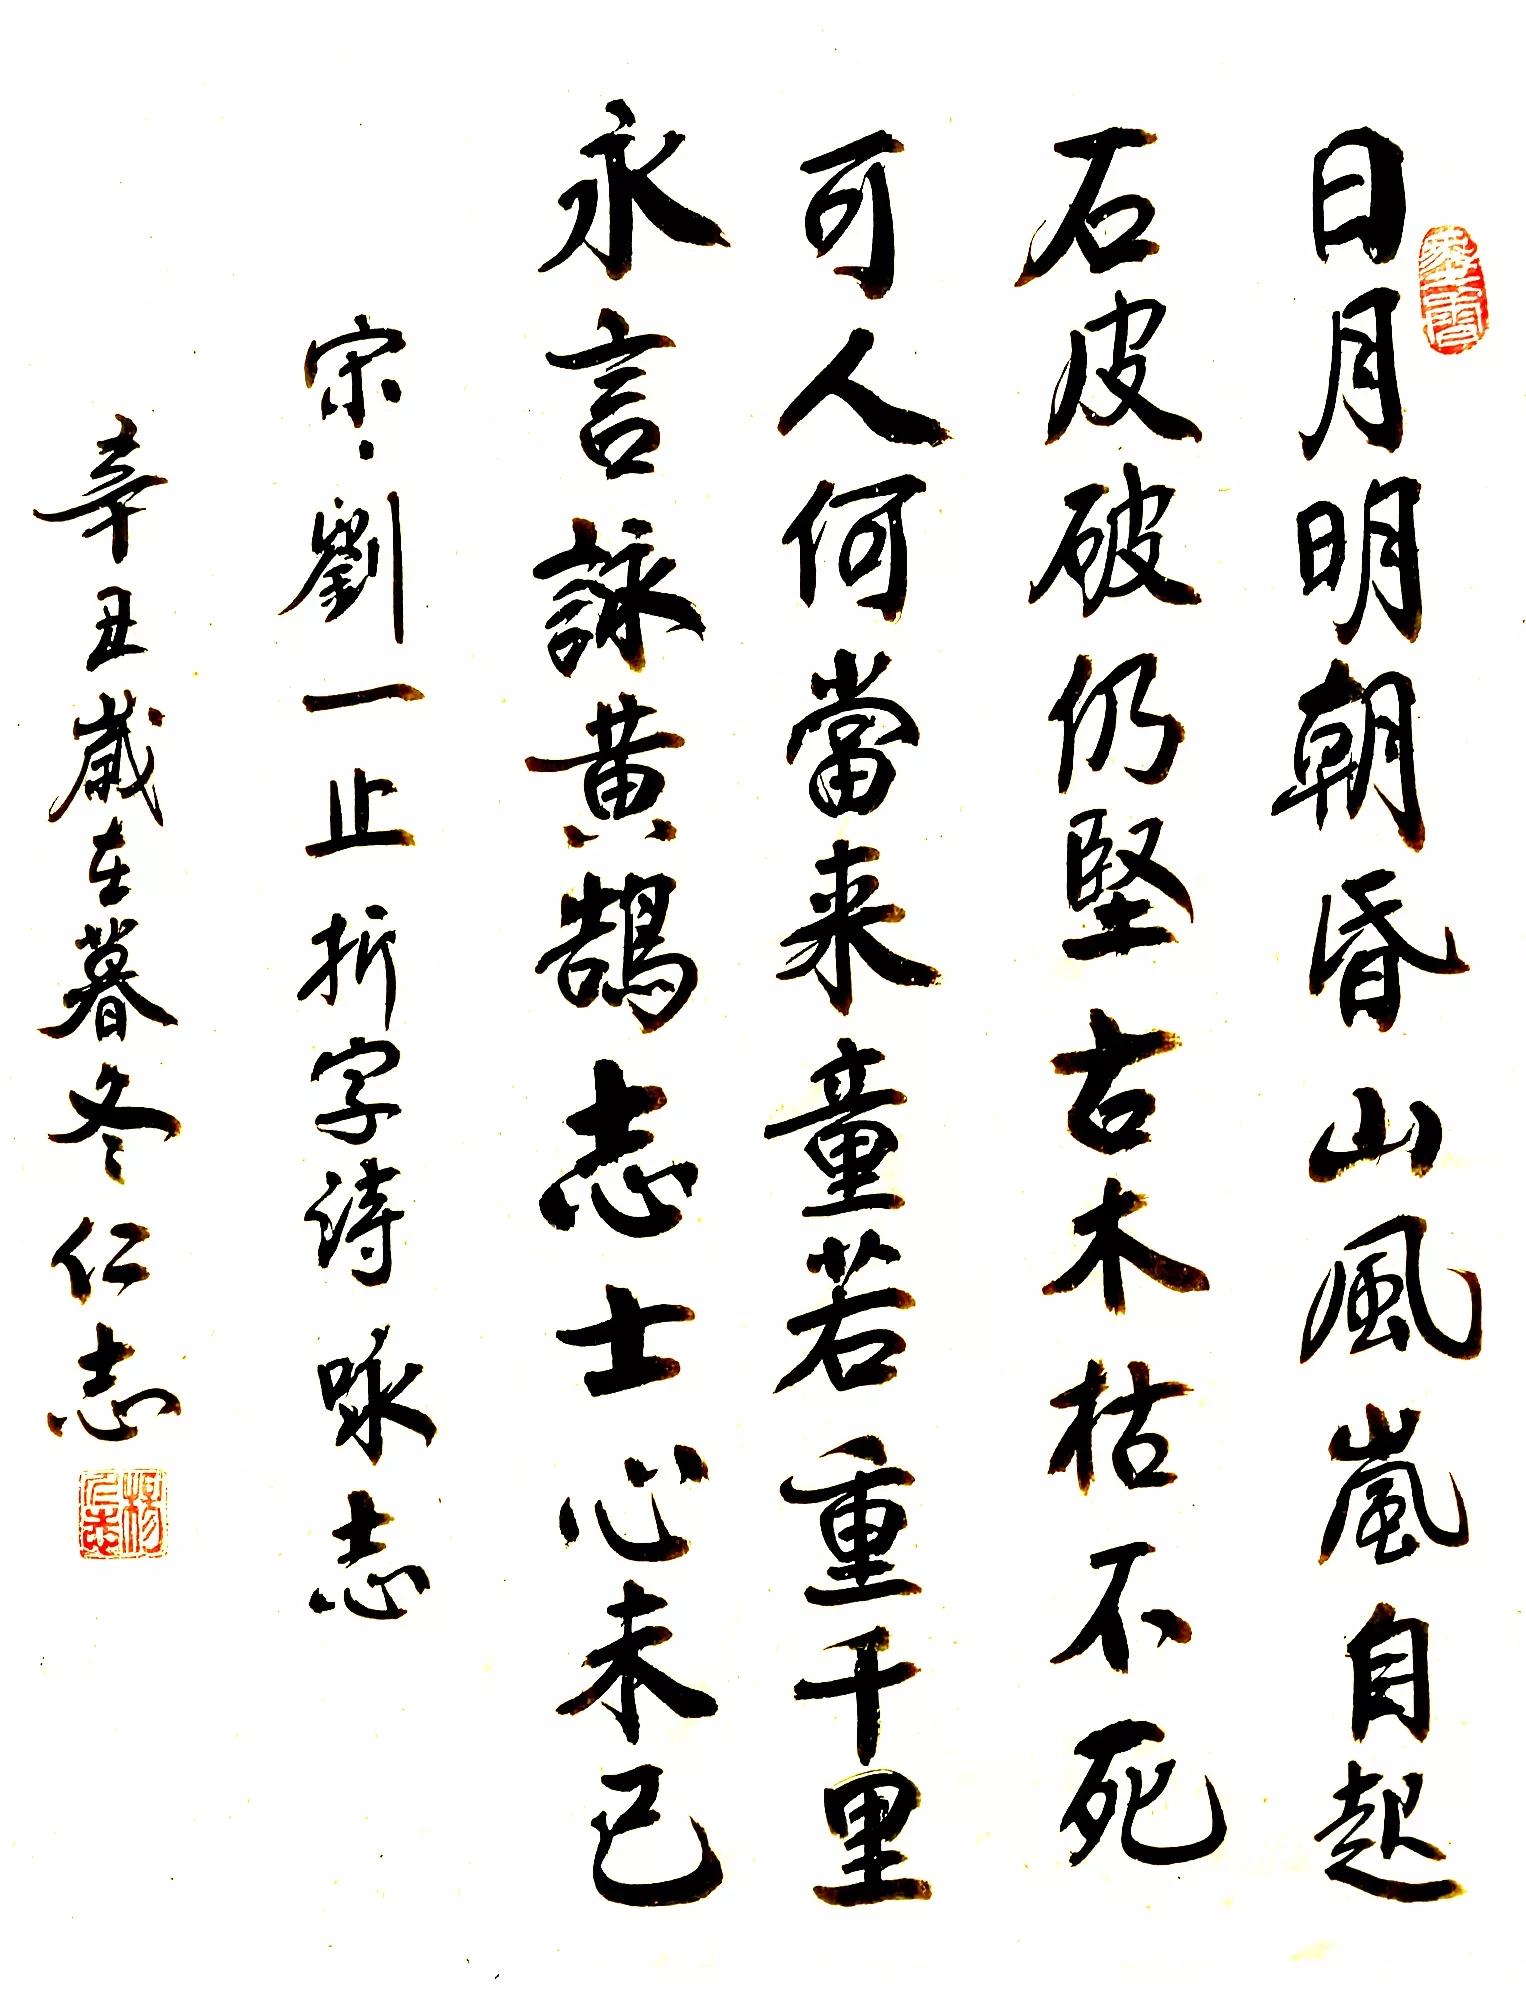 日月明朝昏山風嵐自起
石皮破仍堅古木枯不死
可人何當来童若重千里
永言詠黄鵠志士心未已
宋·劉一止折字詩咏志
辛丑歲在暮冬仁志
楊仁志